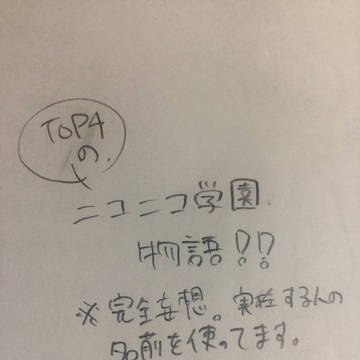 TOP4
の
ニコニコ学園
物語!?
※完全妄想。実在する人の
名前を使ってます。